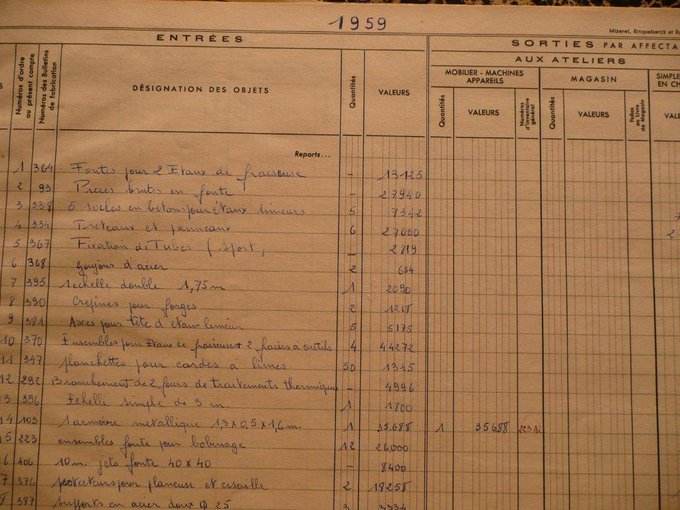 1959
Mizeret, Rinqueberck et R
ENTRÉES
SORTIES PAR AFFECTA
AUX ATELIERS
Numéros d'ordre au présent compte
Numéros des Bulletins de fabrication
DÉSIGNATION DES OBJETS
Quantités
VALEURS
MOBILIER - MACHINES APPAREILS
Quantités
VALEURS
Numéros d'inventaire général
MAGASIN
Quantités
VALEURS
Folios du Livre de Magasin
SIMPLE
EN CH
VALEU
Reports...
1 364 Fontes pour 2 Etaux de fraiseuse - 13125
2 93 Pièces brutes en fonte - 27940
3 338 5 socles en beton pour étaux limeurs 5 7342
4 334 Treteaux et panneaux 6 27000
5 367 Fixation de Tubes (sport, - 2819
6 368 goujons d'acier 2 654
7 395 1 echelle double 1,75m 1 2090
8 390 Crépines pour forges 2 1218
9 381 Axes pour tête d'étau limeur 5 5175
10 370 Ensembles pour Etaux de fraiseuse et 2 fraises à outils 4 44272
11 347 planchettes pour cardes à limes 50 1345
12 292 Branchement de 2 fours de traitements thermiques - 4996
3 396 Echelle simple de 3 m. 1 1800
4 103 1 armoire metallique 1,3 x 0,5 x 1,6 m. 1 35.688 1 35688
5 223 ensembles fonte pour bobinage 12 26,000
6 406 10 m. jets fonte 40 x 40 - 8400
7 376 protecteurs pour planeuse et cisaille 2 18258
8 397 supports en acier doux φ 25 3